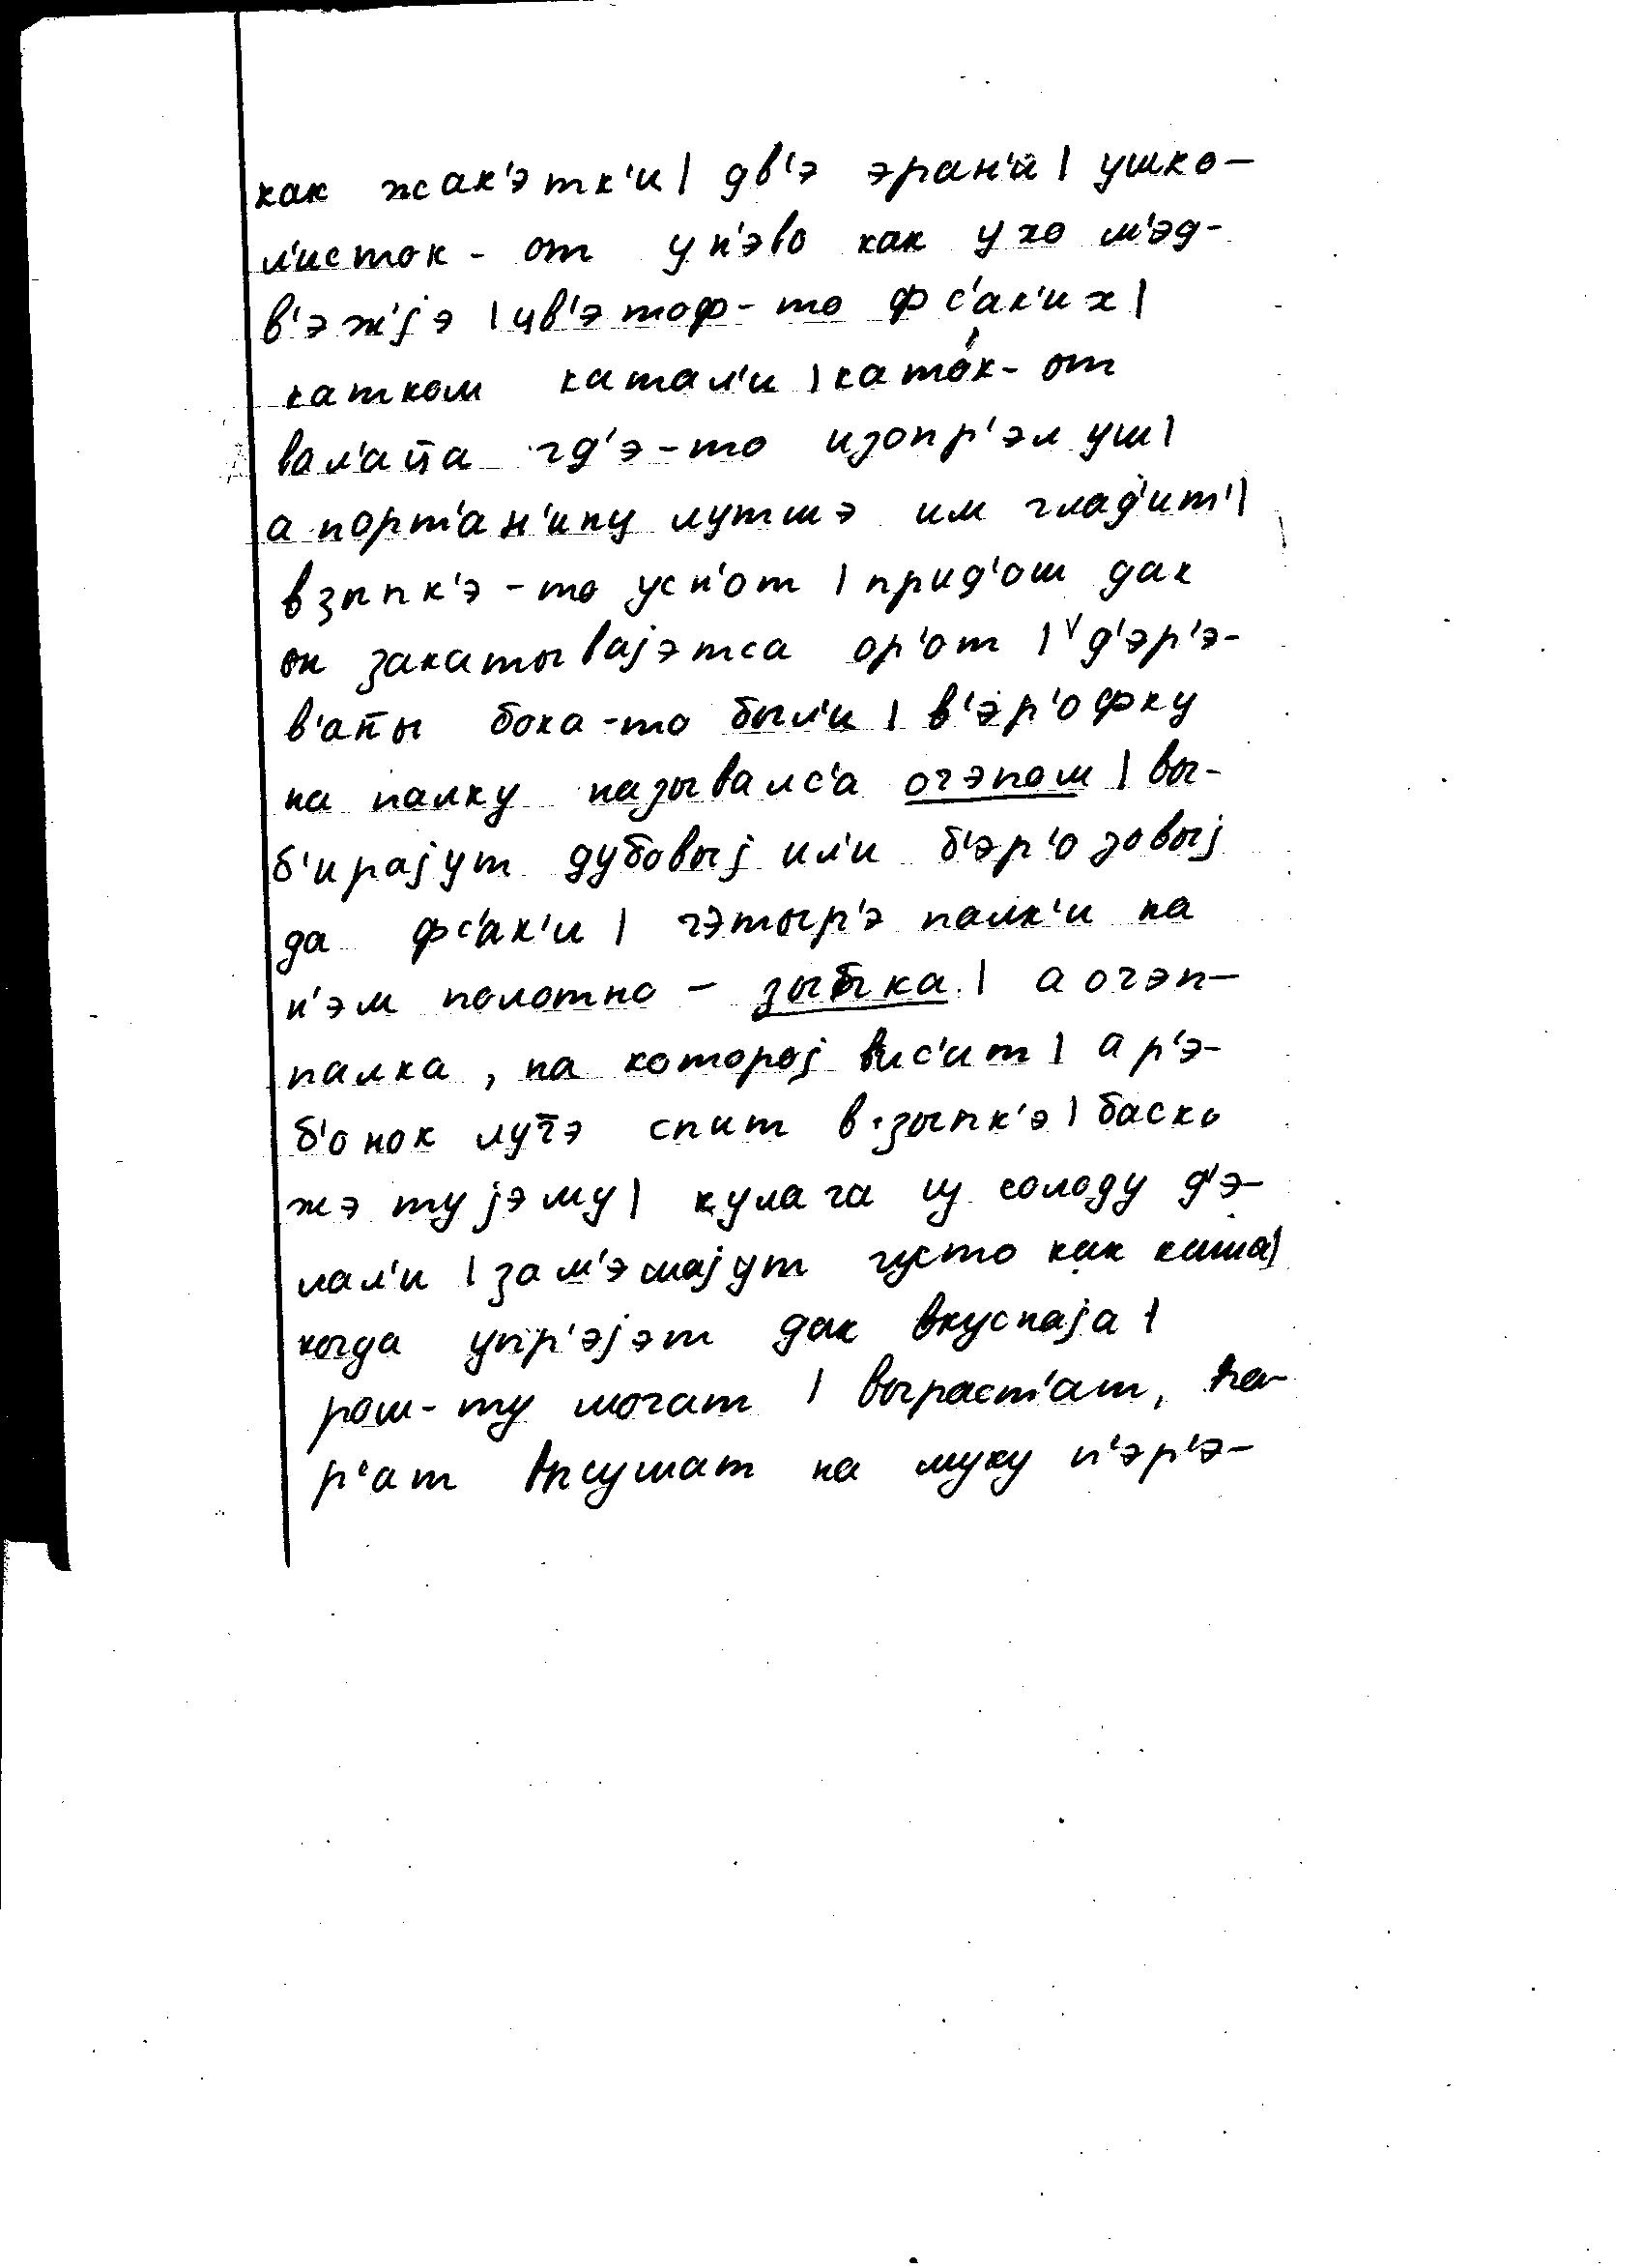 как жак'этк'и | дв'э эран'и | ушко-
л'исток - от у н'эво как ухо м'эд-
в'эж'jэ | цв'этоф-то фс'ак'их |
катком катал'и | като́к- от
вал'аӣа гд'э-то изопр'эл уш |
а порт'ан'ину лутшэ им глад'ит' |
в зыпк'э -то усн'от | прид'ош дак
он закатываjэтса ор'от | v д'эр'э-
в'аны бока-то был'и | в'эр'офку
на палку называлс'а очэпом | вы-
б'ираjут дубовыj ил'и б'эр'озовыj
да фс'ак'и | чэтыр'э палк'и на
н'эм полотно - зыбка | а очэп-
палка , на котороj вис'ит | а р'э-
б'онок луч̄э спит в зыпк'э | баско
жэ ту jэму | кулага из солоду д'э-
лал'и | зам'эшаjут густо как каша |
когда упр'эjэт дак вкуснаjа |
рош-ту мочат | вырост'ат, па-
р'ат высушат на муку п'эр'э-